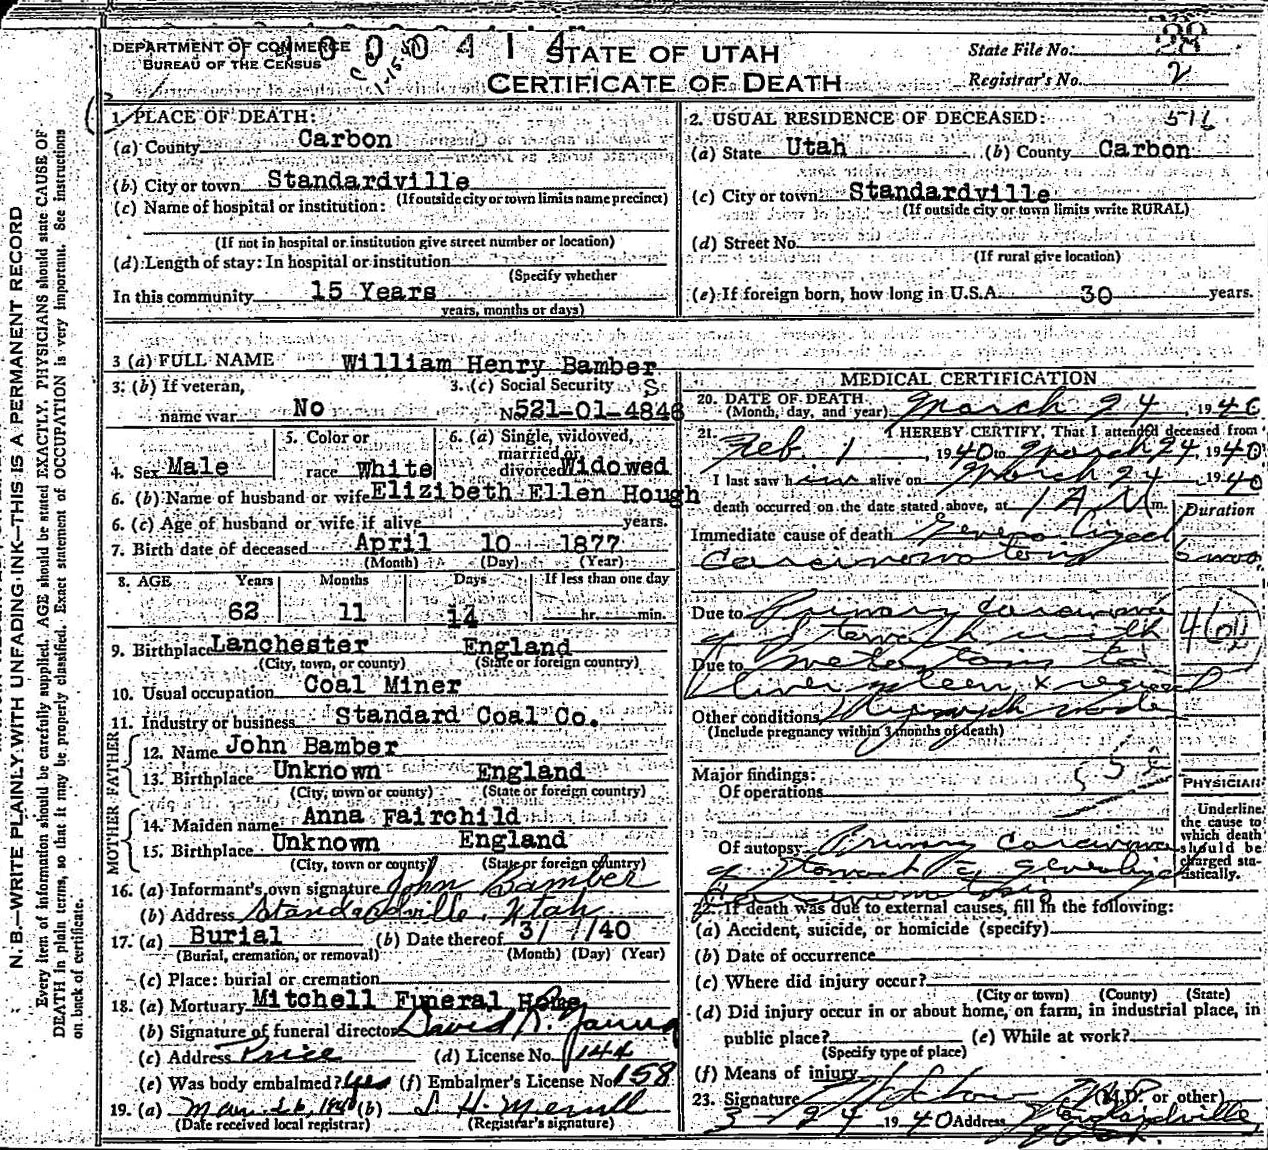 DEPARTMENT OF COMMERCE
BUREAU OF THE CENSUS
STATE OF UTAH
CERTIFICATE OF DEATH
State File No. 28
Registrar's No. 2
N.B.—WRITE PLAINLY WITH UNFADING INK—THIS IS A PERMANENT RECORD
Every item of information should be carefully supplied. AGE should be stated EXACTLY. PHYSICIANS should state CAUSE OF
DEATH in plain terms, so that it may be properly classified. Exact statement of OCCUPATION is very important. See instructions
on back of certificate.
1. PLACE OF DEATH:
(a) County Carbon
(b) City or town Standardville
(If outside city or town limits name precinct)
(c) Name of hospital or institution:
(If not in hospital or institution give street number or location)
(d) Length of stay: In hospital or institution
(Specify whether
In this community 15 Years
years, months or days)
2. USUAL RESIDENCE OF DECEASED: 511
(a) State Utah (b) County Carbon
(c) City or town Standardville
(If outside city or town limits write RURAL)
(d) Street No.
(If rural give location)
(e) If foreign born, how long in U.S.A. 30 years.
3 (a) FULL NAME William Henry Bamber
3. (b) If veteran, name war No
3. (c) Social Security No. 521-01-4846
4. Sex Male
5. Color or race White
6. (a) Single, widowed, married or divorced Widowed
6. (b) Name of husband or wife Elizibeth Ellen Hough
6. (c) Age of husband or wife if alive years.
7. Birth date of deceased April 10 1877
(Month) (Day) (Year)
8. AGE Years Months Days If less than one day
62 11 14 hr. min.
9. Birthplace Lanchester England
(City, town, or county) (State or foreign country)
10. Usual occupation Coal Miner
11. Industry or business Standard Coal Co.
FATHER
12. Name John Bamber
13. Birthplace Unknown England
(City, town or county) (State or foreign country)
MOTHER
14. Maiden name Anna Fairchild
15. Birthplace Unknown England
(City, town or county) (State or foreign country)
16. (a) Informant's own signature John Bamber
(b) Address Standardville, Utah
17. (a) Burial (b) Date thereof 3/ /40
(Burial, cremation, or removal) (Month) (Day) (Year)
(c) Place: burial or cremation
18. (a) Mortuary Mitchell Funeral Home
(b) Signature of funeral director David R.
(c) Address Price (d) License No. 144
(e) Was body embalmed? Yes (f) Embalmer's License No. 158
19. (a) Mar. 26, 1940 (b) S. H. Merrill
(Date received local registrar) (Registrar's signature)
MEDICAL CERTIFICATION
20. DATE OF DEATH
(Month, day, and year) March 24, 1940
21. I HEREBY CERTIFY, That I attended deceased from
Feb. 1, 1940 to March 24, 1940
I last saw him alive on March 24 1940
death occurred on the date stated above, at 1 A.M. m.
Duration
Immediate cause of death Generalized
Carcinomatosis 6 mos.
Due to Primary Carcinoma
of stomach with
Due to metastasis to
liver spleen & regional
Other conditions lymph node
(Include pregnancy within 3 months of death)
Major findings:
Of operations
PHYSICIAN
Underline the cause to which death should be charged statistically.
Of autopsy Primary Carcinoma
of stomach & generalized
Carcinomatosis
22. If death was due to external causes, fill in the following:
(a) Accident, suicide, or homicide (specify)
(b) Date of occurrence
(c) Where did injury occur?
(City or town) (County) (State)
(d) Did injury occur in or about home, on farm, in industrial place, in
public place? (e) While at work?
(Specify type of place)
(f) Means of injury
23. Signature (M.D. or other)
3-24 1940 Address Standardville
Utah.